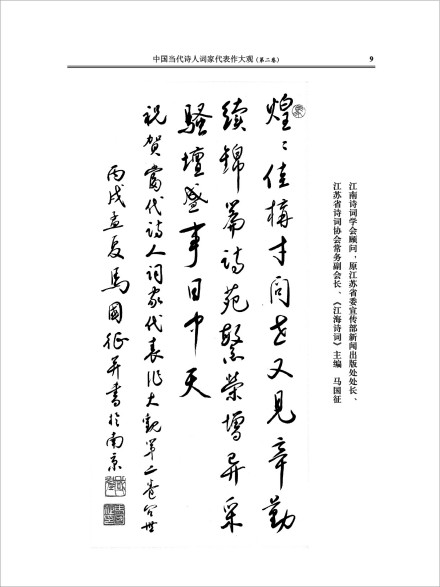 中国当代诗人词家代表作大观（第二卷）
9
江南诗词学会顾问，原江苏省委宣传部新闻出版处处长、
江苏省诗词协会常务副会长、《江海诗词》主编　马国征
煌〻佳構才问世又見辛勤
續錦篇詩苑繁榮增异采
騷壇盛事日中天
祝賀當代诗人词家代表作大觀第二卷问世
丙戌孟夏馬國征并書於南京